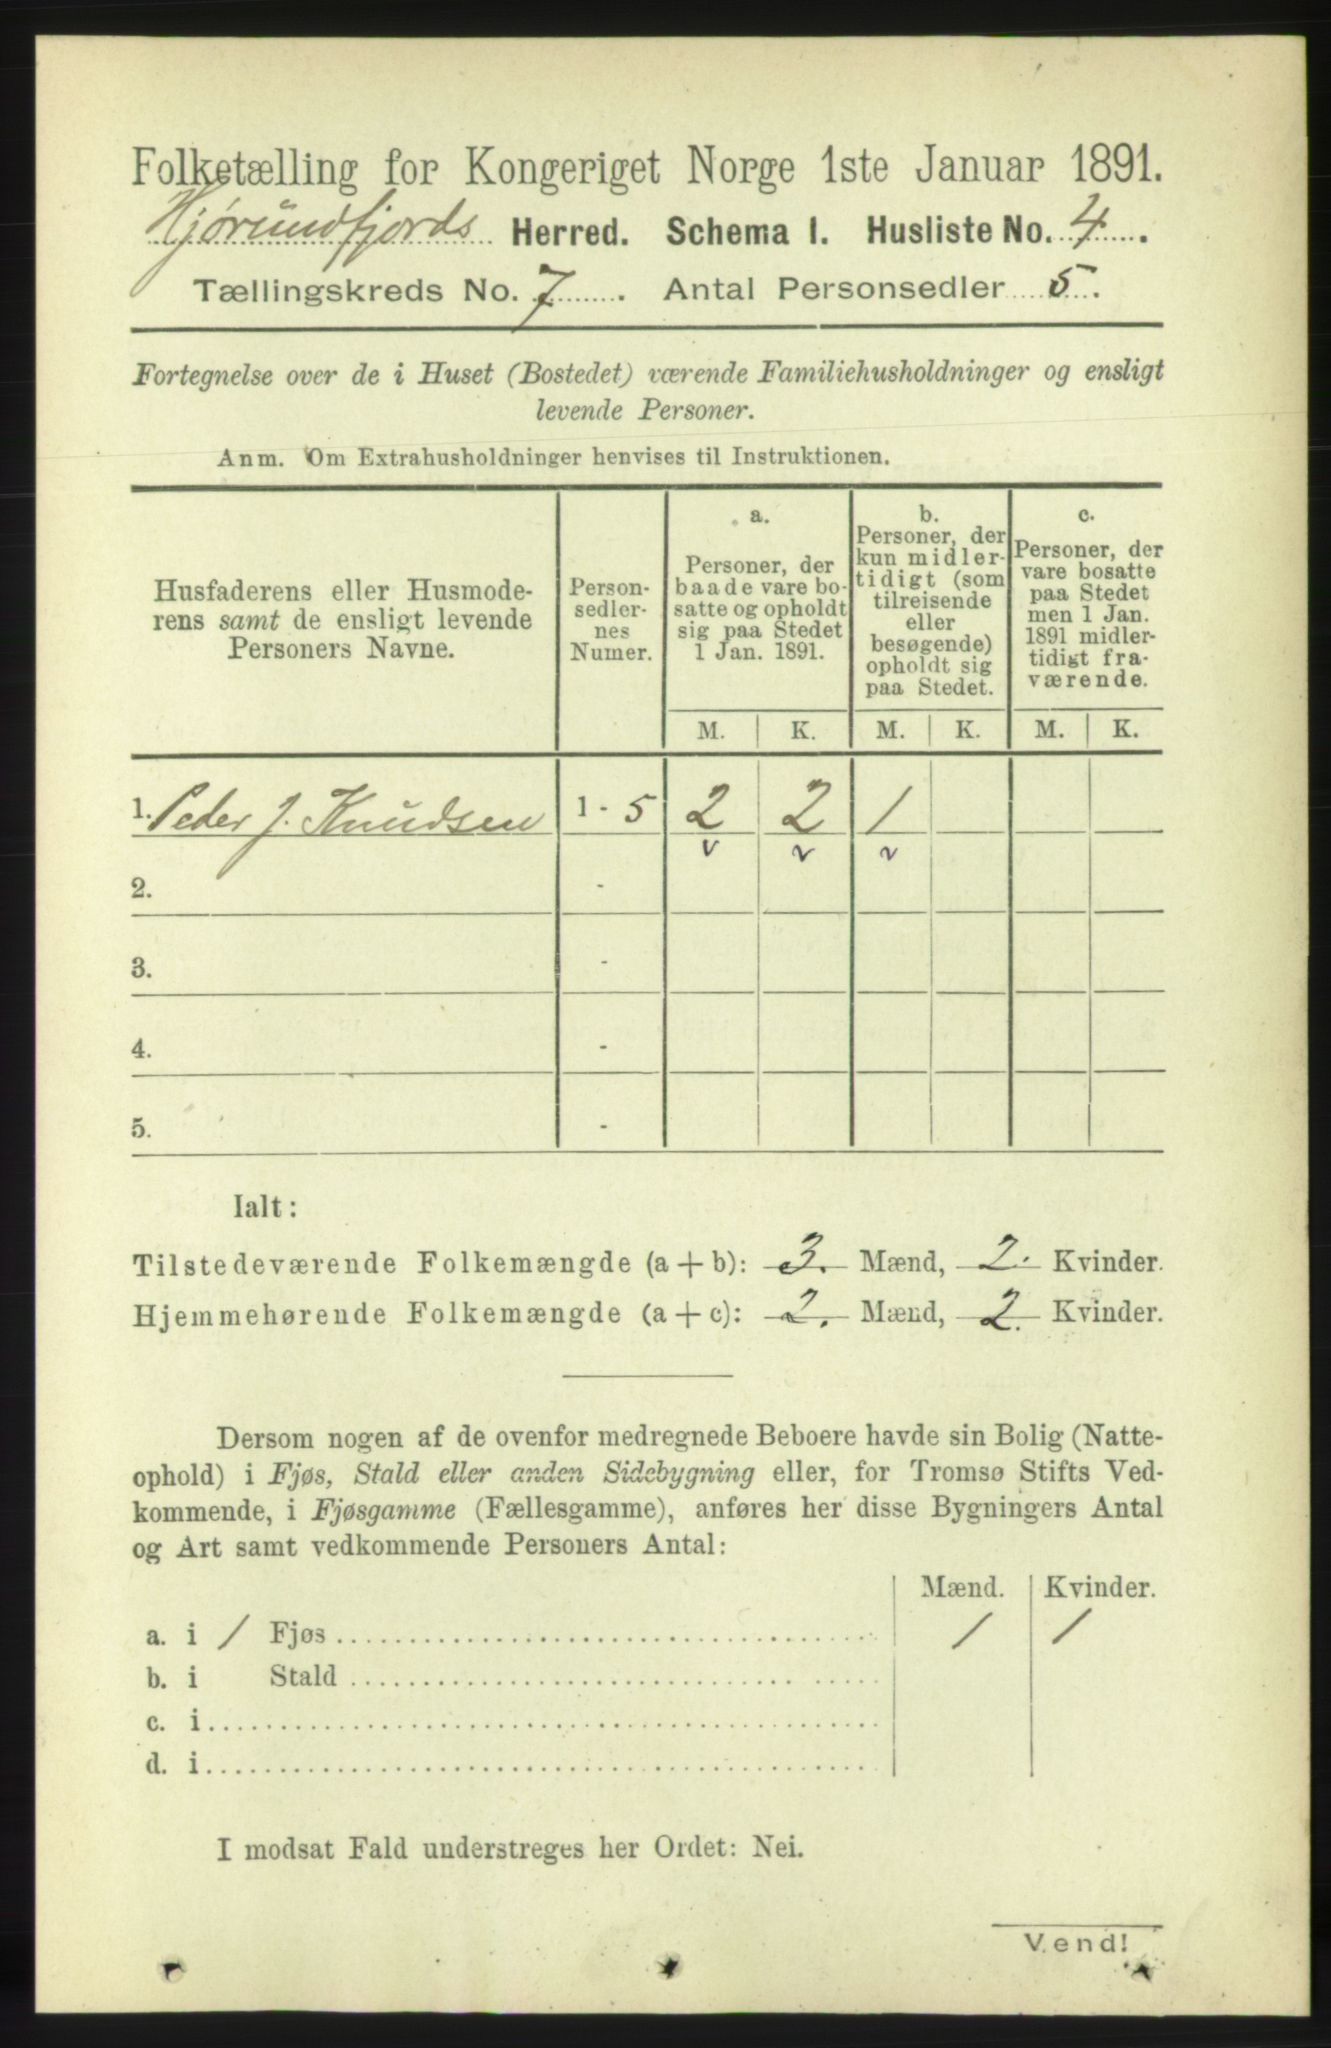 Folketælling for Kongeriget Norge 1ste Januar 1891.
Hjørundfjords Herred. Schema I. Husliste No. 4.
Tællingskreds No. 7. Antal Personsedler 5.
Fortegnelse over de i Huset (Bostedet) værende Familiehusholdninger og ensligt
levende Personer.
Anm. Om Extrahusholdninger henvises til Instruktionen.
Husfaderens eller Husmode-
rens samt de ensligt levende
Personers Navne.
Person-
sedler-
nes
Numer.
a.
Personer, der
baade vare bo-
satte og opholdt
sig paa Stedet
1 Jan. 1891.
b.
Personer, der
kun midler-
tidigt (som
tilreisende
eller
besøgende)
opholdt sig
paa Stedet.
c.
Personer, der
vare bosatte
paa Stedet
men 1 Jan.
1891 midler-
tidigt fra-
værende.
M. K. M. K. M. K.
1. Peder J. Knudsen 1 - 5 2 2 1
v v v
2. -
3. -
4. -
5. -
Ialt:
Tilstedeværende Folkemængde (a + b): 3. Mænd, 2. Kvinder.
Hjemmehørende Folkemængde (a + c): 2. Mænd, 2. Kvinder.
Dersom nogen af de ovenfor medregnede Beboere havde sin Bolig (Natte-
ophold) i Fjøs, Stald eller anden Sidebygning eller, for Tromsø Stifts Ved-
kommende, i Fjøsgamme (Fællesgamme), anføres her disse Bygningers Antal
og Art samt vedkommende Personers Antal:
Mænd. Kvinder.
a. i 1 Fjøs 1 1
b. i Stald
c. i
d. i
I modsat Fald understreges her Ordet: Nei.
Vend!